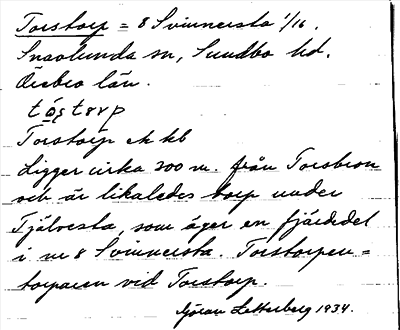 Torstorp = 8 Svinnersta 1/16.
Snavlunda sn, Sundbo hd.
Örebro län.
tåstorp
Torstorp ek kb
Ligger cirka 200 m. från Torsbron
och är likaledes torp under
Tjälvesta, som äger en fjärdedel
i nr 8 Svinnersta. Torstorpen =
torparen vid Torstorp.
Göran Letterberg 1934.